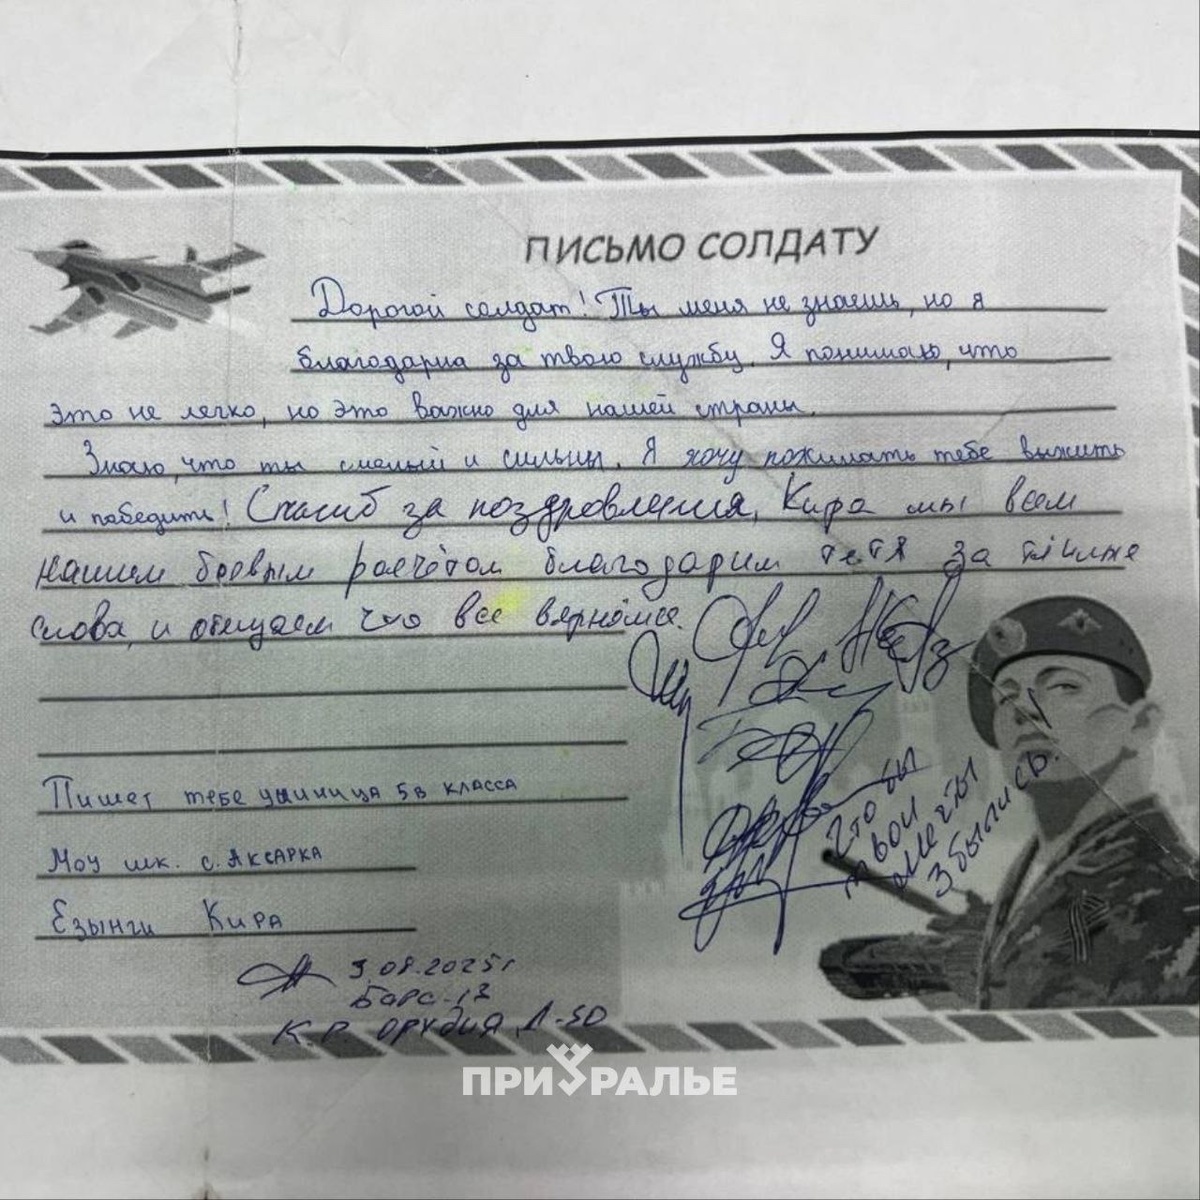 ПИСЬМО СОЛДАТУ
Дорогой солдат! Ты меня не знаешь, но я
благодарна за твою службу. Я понимаю, что
это не легко, но это важно для нашей страны.
Знаю, что ты смелый и сильны. Я хочу пожимать тебе выжить
и победить! Спасиб за поздровления, Кира мы всем
нашим боевым расчётом благодарим тебя за тёплые
слова, и обещаем что все вернёмся.
Что бы
твои
мечты
збылись.
Пишет тебе ученица 5в класса
Моу шк. с. Аксарка
Езынги Кира
3.08.2025г
Барс-
К.Р. орудия Д-30
ПРИУРАЛЬЕ